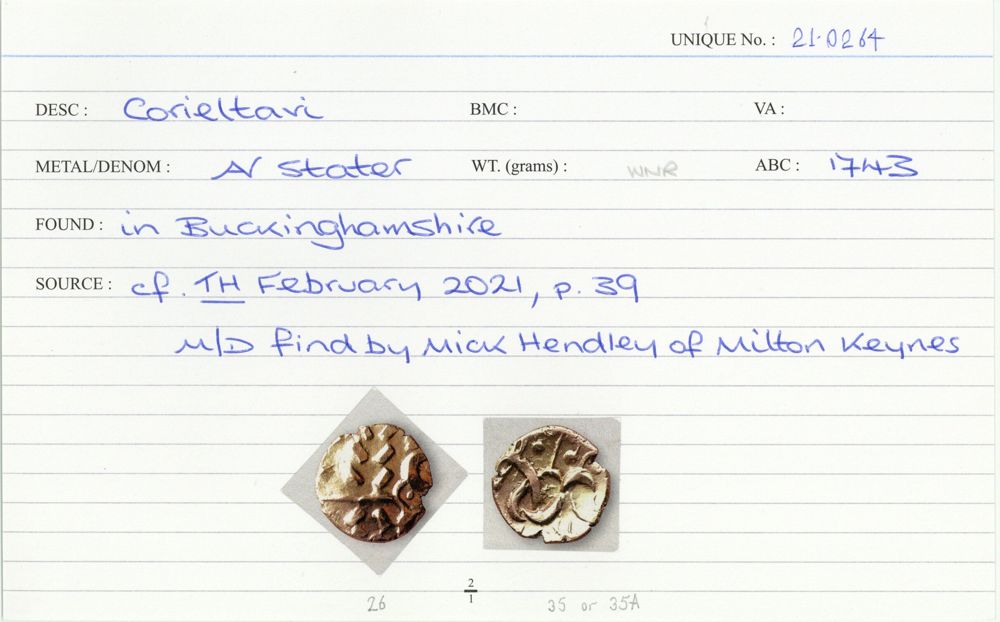 UNIQUE No. : 21·0264
DESC : Corieltavi BMC : VA :
METAL/DENOM : AV Stater WT. (grams) : WNR ABC : 1743
FOUND : in Buckinghamshire
SOURCE : cf. TH February 2021, p. 39
M/D find by Mick Hendley of Milton Keynes
2
1
26 35 or 35A